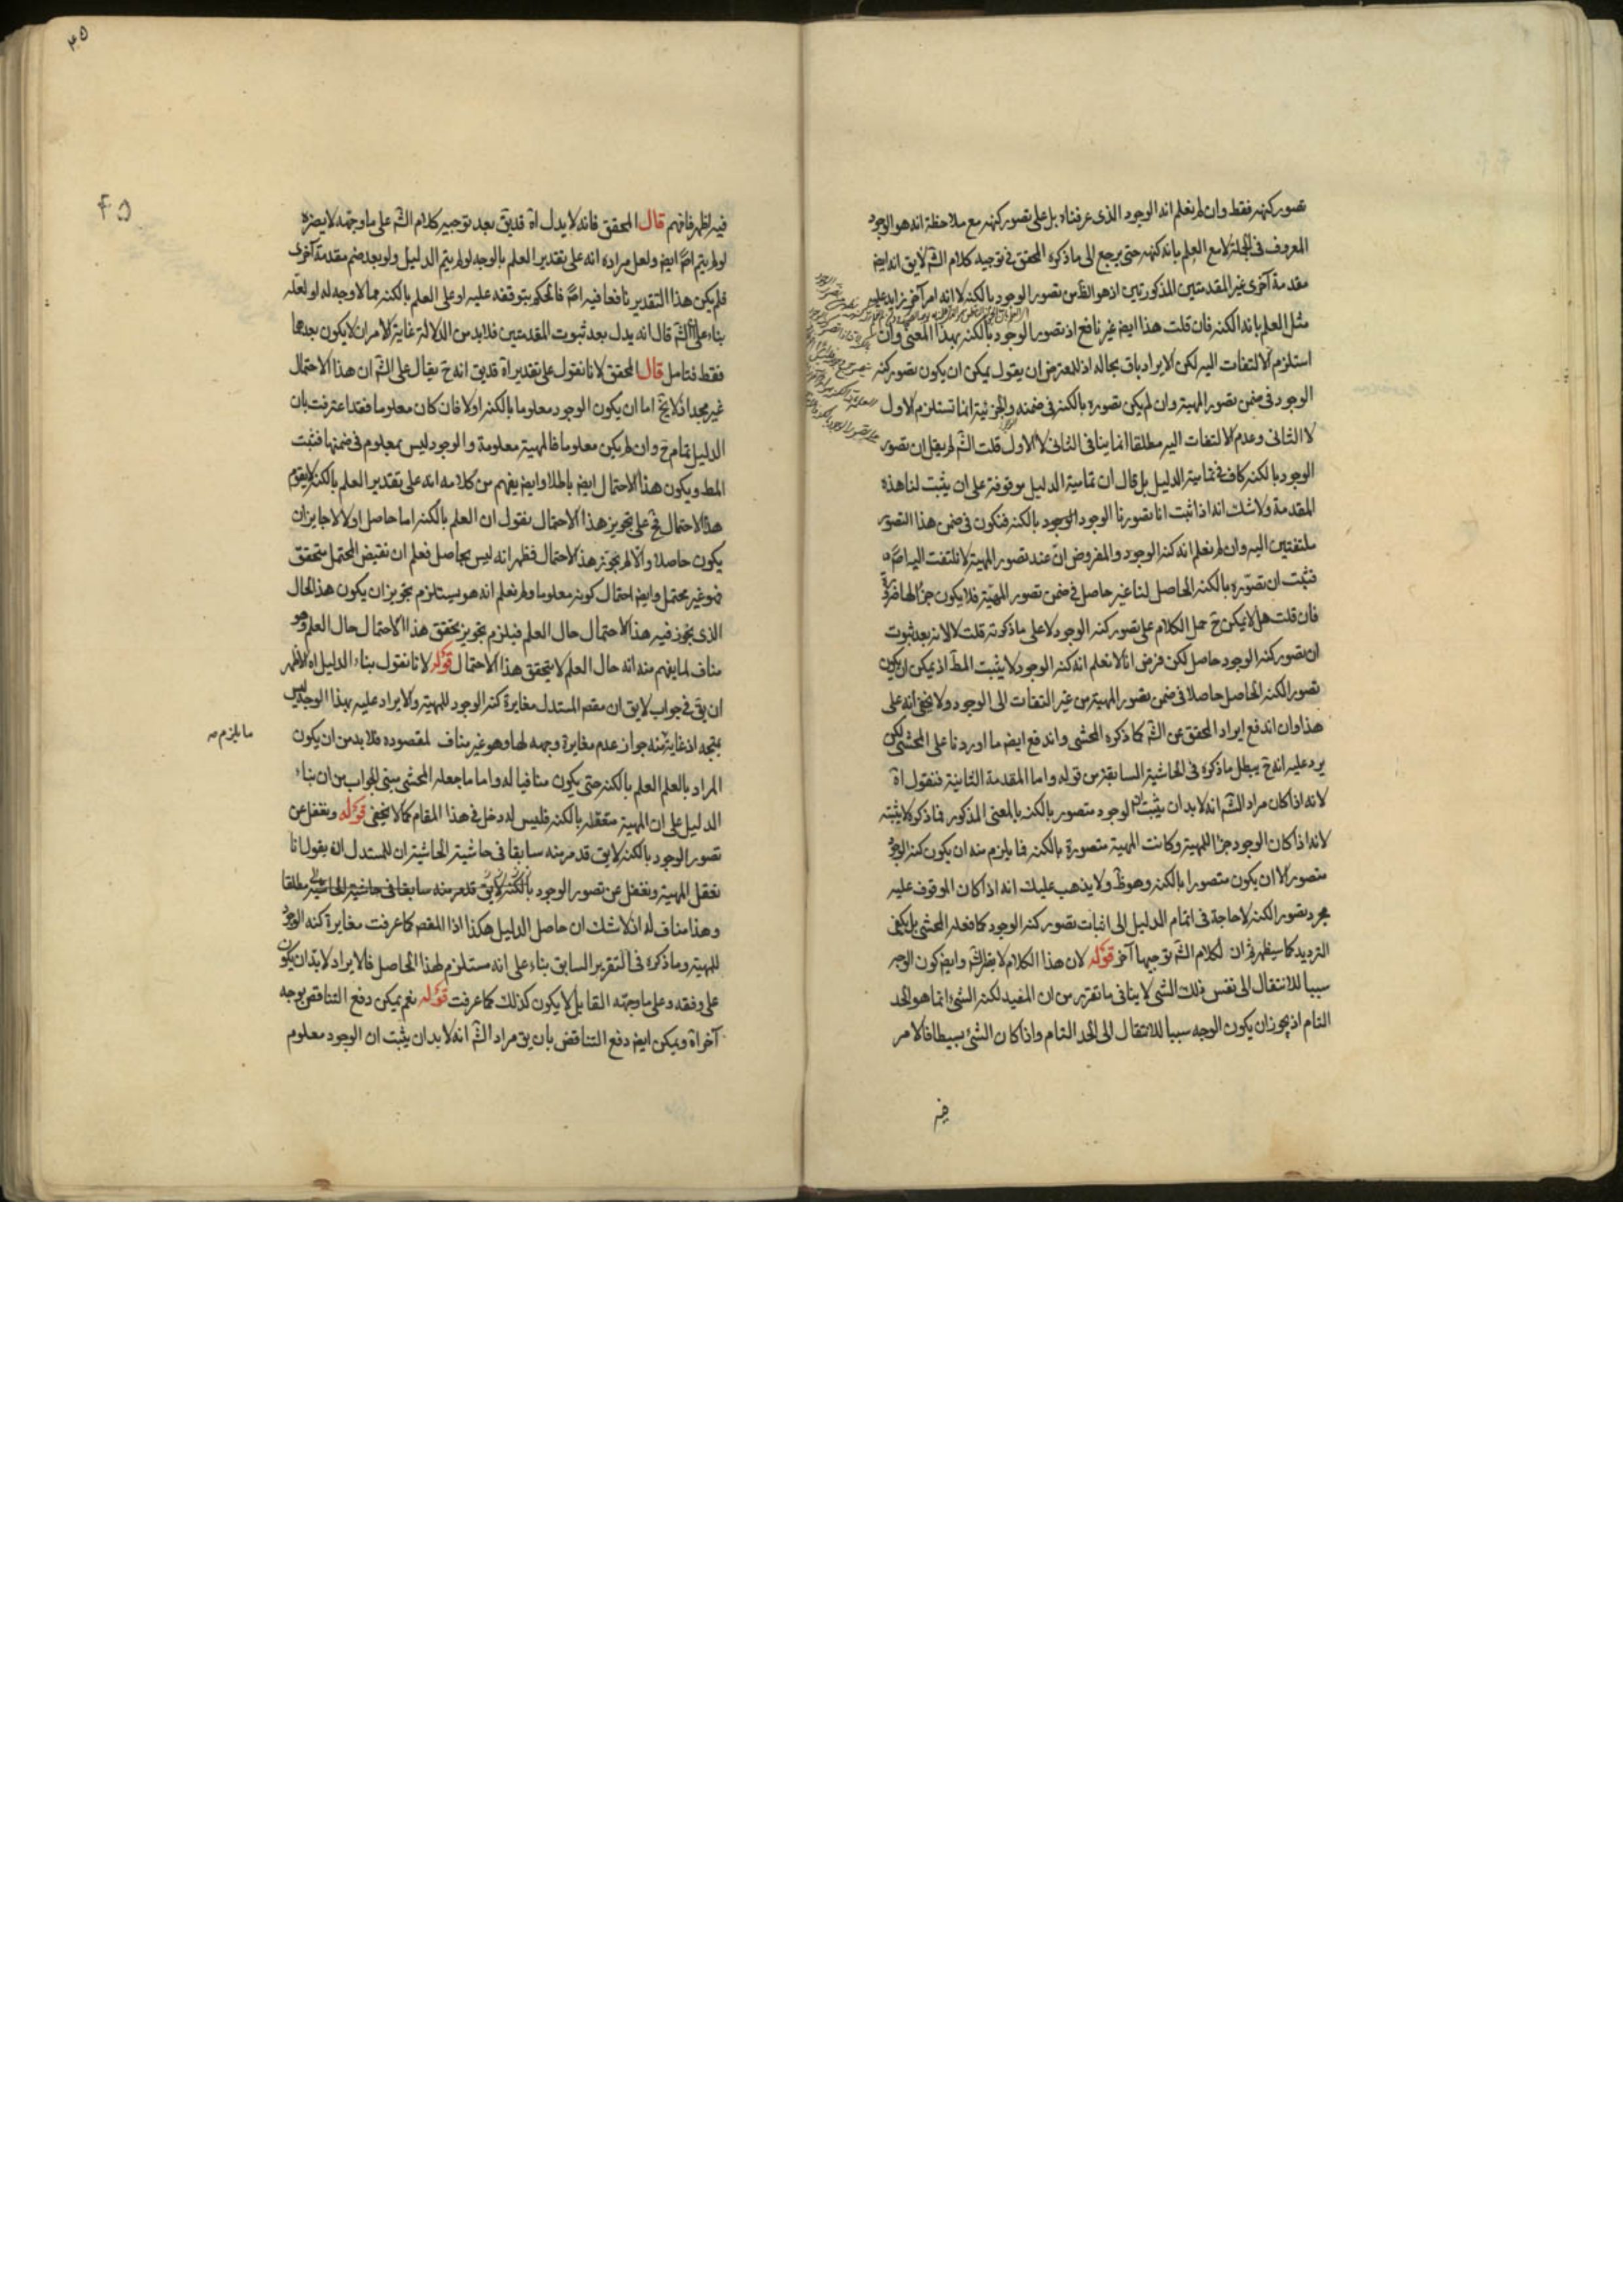 تصور كنهه فقط وان لم نعلم انه الوجود الذى عرفناه بل على تصور كنهه مع ملاحظة انه هو الوجود
المعروف فى الجملة لا مع العلم بانه كنهه حتى يرجع الى ما ذكره المحقق فى توجيه كلام الشّ لا يق انه ايض
مقدمة اخرى غير المقدمتين المذكورتين اذ هو الظّ من تصور الوجود بالكنه لا انه امر آخر زايد عليه
مثل العلم بانه الكنه فان قلت هذا ايض غير نافع اذ تصور الوجود بالكنه بهذا المعنى وان
استلزم الالتفات اليه لكن الايراد باق بحاله اذ للمعترض ان يقول يمكن ان يكون تصور كنه
الوجود فى ضمن تصور المهية وان لم يكن تصوره بالكنه فى ضمنه والجزئية انما تستلزم الاول
لا الثانى وعدم الالتفات اليه مطلقا انما ينافى الثانى لا الاول قلت الشّ لم يقل ان تصور
الوجود بالكنه كاف فى تمامية الدليل بل قال ان تمامية الدليل موقوفة على ان يثبت لنا هذه
المقدمة ولا شك انه اذا ثبت انا تصورنا الوجود بالكنه فنكون فى ضمن هذا التصور
ملتفتين اليه وان لم نعلم انه كنه الوجود والمفروض ان عند تصور المهية لا نلتفت اليه اصلا
فثبت ان تصوره بالكنه الحاصل لنا غير حاصل فى ضمن تصور المهية فلا يكون جزءا لها
فان قلت هل لا يمكن ح حمل الكلام على تصور كنه الوجود لا على ما ذكرته قلت لا لانه بعد ثبوت
ان تصور كنه الوجود حاصل لكن فرض انا لا نعلم انه كنه الوجود لا يثبت المط اذ يمكن ان يكون
تصور الكنه الحاصل حاصلا فى ضمن تصور المهية من غير التفات الى الوجود ولا يخفى انه على
هذا وان اندفع ايراد المحقق عن الشّ كما ذكره المحشى واندفع ايض ما اوردنا على المحشى لكن
يرد عليه انه ح يبطل ما ذكره فى الحاشية السابقة من قوله واما المقدمة الثانية فنقول آه
لانه اذا كان مراد الشّ انه لا بد ان يثبت ان الوجود متصور بالكنه بالمعنى المذكور فما ذكره لا يثبته
لانه اذا كان الوجود جزءا للمهية وكانت المهية متصورة بالكنه فما يلزم منه ان يكون كنه الوجود
متصورا لا ان يكون متصورا بالكنه وهو ظ ولا يذهب عليك انه اذا كان الموقوف عليه
مجرد تصور الكنه لا حاجة فى اتمام الدليل الى اثبات تصور كنه الوجود كما فعله المحشى بل يكفى
الترديد كما سيظهر ثم ان لكلام الشّ توجيها آخر قوله لان هذا الكلام لا يقله الشّ وايض كون الوجه
سببا للانتقال الى نفس ذلك الشى لا ينافى ما تقرر من ان المفيد لكنه الشئ انما هو الحد
التام اذ يجوز ان يكون الوجه سببا للانتقال الى الحد التام واذا كان الشئ بسيطا فالامر
فيه
٤٥
٣٥
فيه اظهر فافهم قال المحقق فانه لا يدل آه قد يق بعد توجيه كلام الشّ على ما وجهه لا يضره
لو لم يتم اصلا ايض ولعل مراده انه على تقدير العلم بالوجه لو لم يتم الدليل ولو بعد ضم مقدمة اخرى
فلم يكن هذا التقدير نافعا فيه اصلا فالحكم بتوقفه عليه او على العلم بالكنه مما لا وجه له او لعله
بناء على ان الشّ قال انه يدل بعد ثبوت المقدمتين فلا بد من الدلالة غاية الامر ان لا يكون بعدهما
فقط فتامل قال المحقق لانا نقول على تقدير آه قد يق انه ح يقال على الشّ ان هذا الاحتمال
غير مجد اذ لا يخ اما ان يكون الوجود معلوما بالكنه اولا فان كان معلوما فقد اعترفت بان
الدليل تمام ح وان لم يكن معلوما فالمهية معلومة والوجود ليس بمعلوم فى ضمنها فثبت
المط ويكون هذا الاحتمال ايض باطلا وايض يفهم من كلامه انه على تقدير العلم بالكنه لا يقوم
هذا الاحتمال فح على تجويز هذا الاحتمال نقول ان العلم بالكنه اما حاصل اولا لا جايز ان
يكون حاصلا والا لم يجز هذا الاحتمال فظهر انه ليس بحاصل فعلم ان نقيض المحتمل متحقق
فهو غير محتمل وايض احتمال كونه معلوما ولم نعلم انه هو يستلزم تجويز ان يكون هذا الحال
الذى يجوز فيه هذا الاحتمال حال العلم فيلزم تجويز تحقق هذا الاحتمال حال العلم وهو
مناف لما يفهم منه انه حال العلم لا يتحقق هذا الاحتمال قوله لانا نقول بناء الدليل آه الاظهر
ان يق فى جواب لا يق ان مقصود المستدل مغايرة كنه الوجود للمهية والايراد عليه بهذا الوجه ليس
بمتجه اذ غايته منه جواز عدم مغايرة وجهه لها وهو غير مناف لمقصوده فلا بد من ان يكون
ما يلزم
المراد بالعلم العلم بالكنه حتى يكون منافيا له واما ما جعله المحشى مبنى الجواب من ان بناء
الدليل على ان المهية متعقلة بالكنه فليس له دخل فى هذا المقام كما لا يخفى قوله ونغفل عن
تصور الوجود بالكنه لا يق قد مر منه سابقا فى حاشية الحاشية ان للمستدل ان يقول انا
نعقل المهية ونغفل عن تصور الوجود بالكنه لا يق قد مر منه سابقا فى حاشية الحاشية مطلقا
وهذا مناف له اذ لا شك ان حاصل الدليل هكذا اذ المقصود كما عرفت مغايرة كنه الوجود
للمهية وما ذكره فى التقرير السابق بناء على انه مستلزم لهذا الحاصل فالايراد لا بد ان يكون
على وفقه وعلى ما وجهه القايل لا يكون كذلك كما عرفت قوله نعم يمكن دفع التناقض بوجه
آخر آه ويمكن ايض دفع التناقض بان يق مراد الشّ انه لا بد ان يثبت ان الوجود معلوم